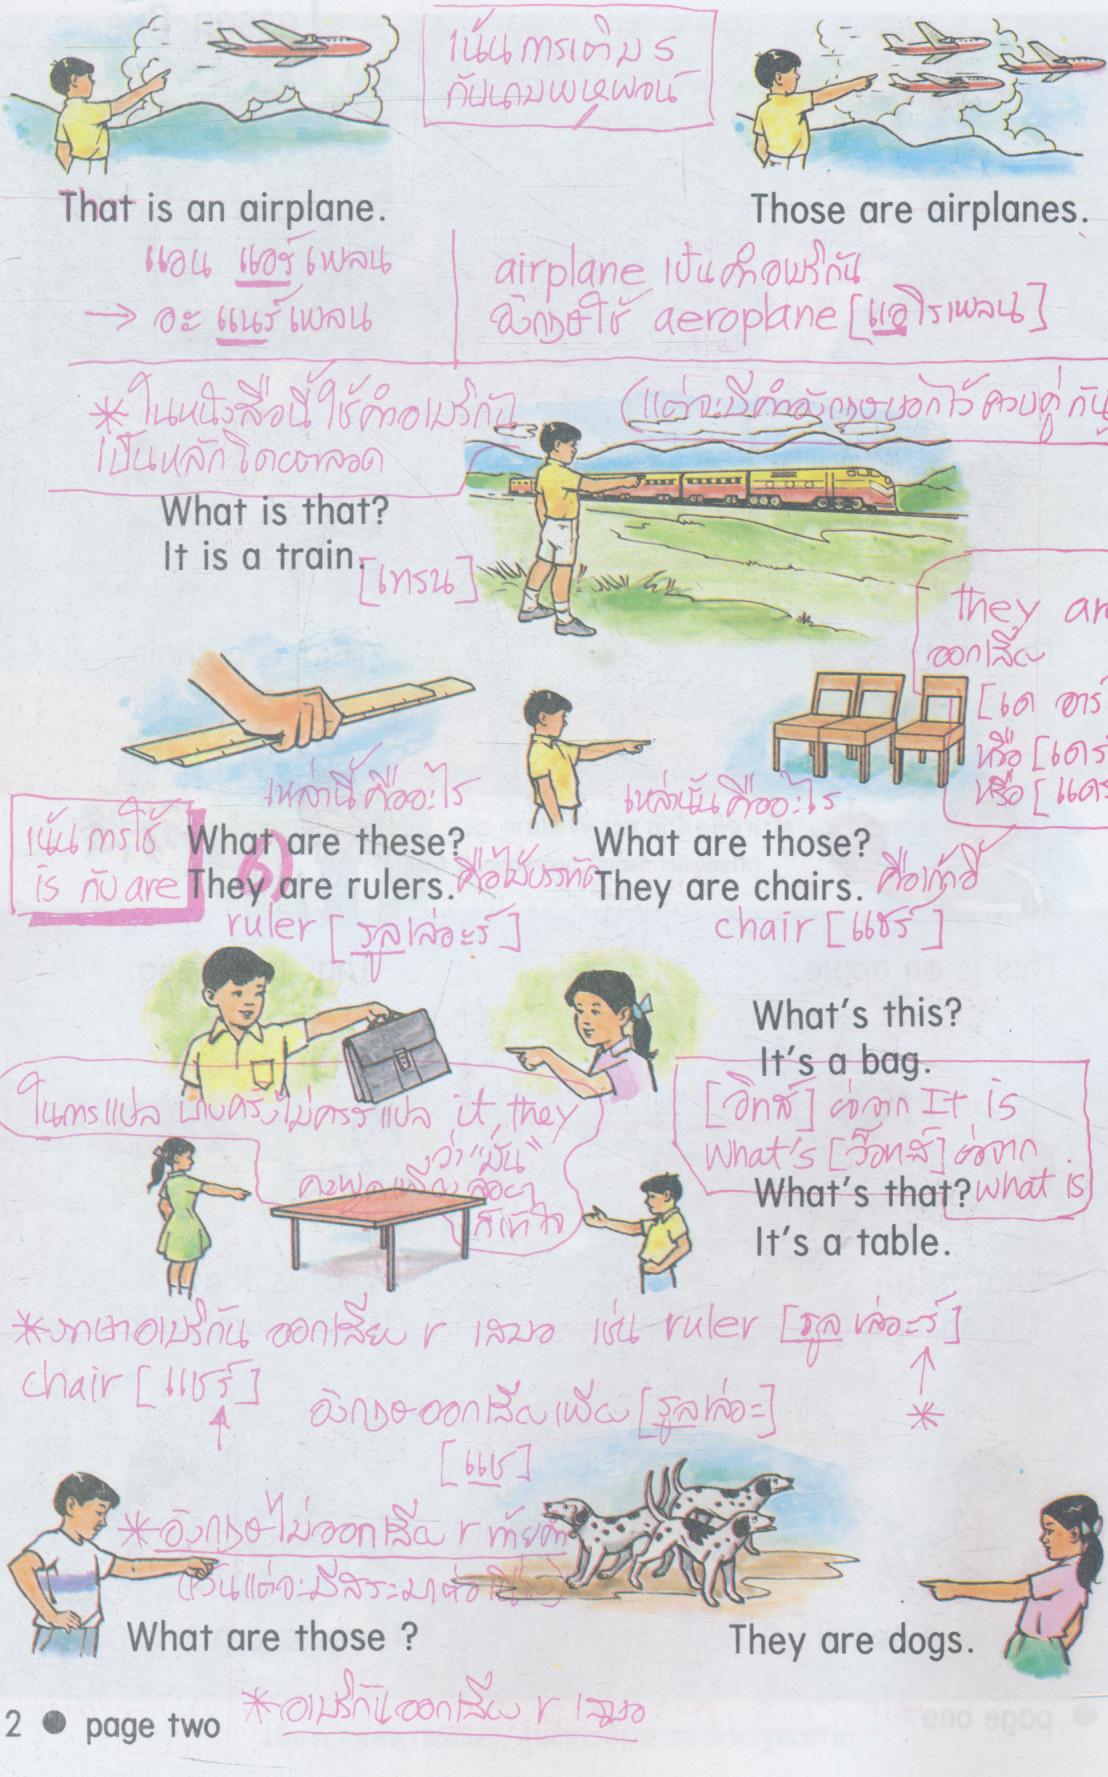 เน้นการเติม s
กับนามพหูพจน์
That is an airplane.
Those are airplanes.
แอน แอร์เพลน
→ อะ แนร์เพลน
airplane เป็นคำอเมริกัน
อังกฤษใช้ aeroplane [แอโรเพลน]
*ในหนังสือนี้ใช้คำอเมริกัน
เป็นหลักโดยตลอด
(แต่จะมีคำอังกฤษบอกไว้ควบคู่กัน
What is that?
It is a train.
[เทรน]
they are
ออกเสียง
[เด อาร์
หรือ [เดร
หรือ [แดร
เหล่านี้คืออะไร
เหล่านั้นคืออะไร
เน้นการใช้
is กับ are
What are these?
They are rulers. คือไม้บรรทัด
ruler [รูลเล่อะร์]
What are those?
They are chairs. คือเก้าอี้
chair [แชร์]
What's this?
It's a bag.
[อิทส์] ย่อจาก It is
What's [ว็อทส์] ย่อจาก
what is
ในการแปล บางครั้งไม่ควรแปล it, they
ว่า "มัน"
ก็เข้าใจ
What's that?
It's a table.
*ภาษาอเมริกัน ออกเสียง r เสมอ เช่น ruler [รูลเล่อะร์]
chair [แชร์]
อังกฤษออกเสียงเพียง [รูลเล่อะ]
[แช]
*อังกฤษไม่ออกเสียง r ท้ายคำ
(เว้นแต่จะมีสระมาต่อ
What are those ?
They are dogs.
*อเมริกันออกเสียง r เสมอ
2 ● page two